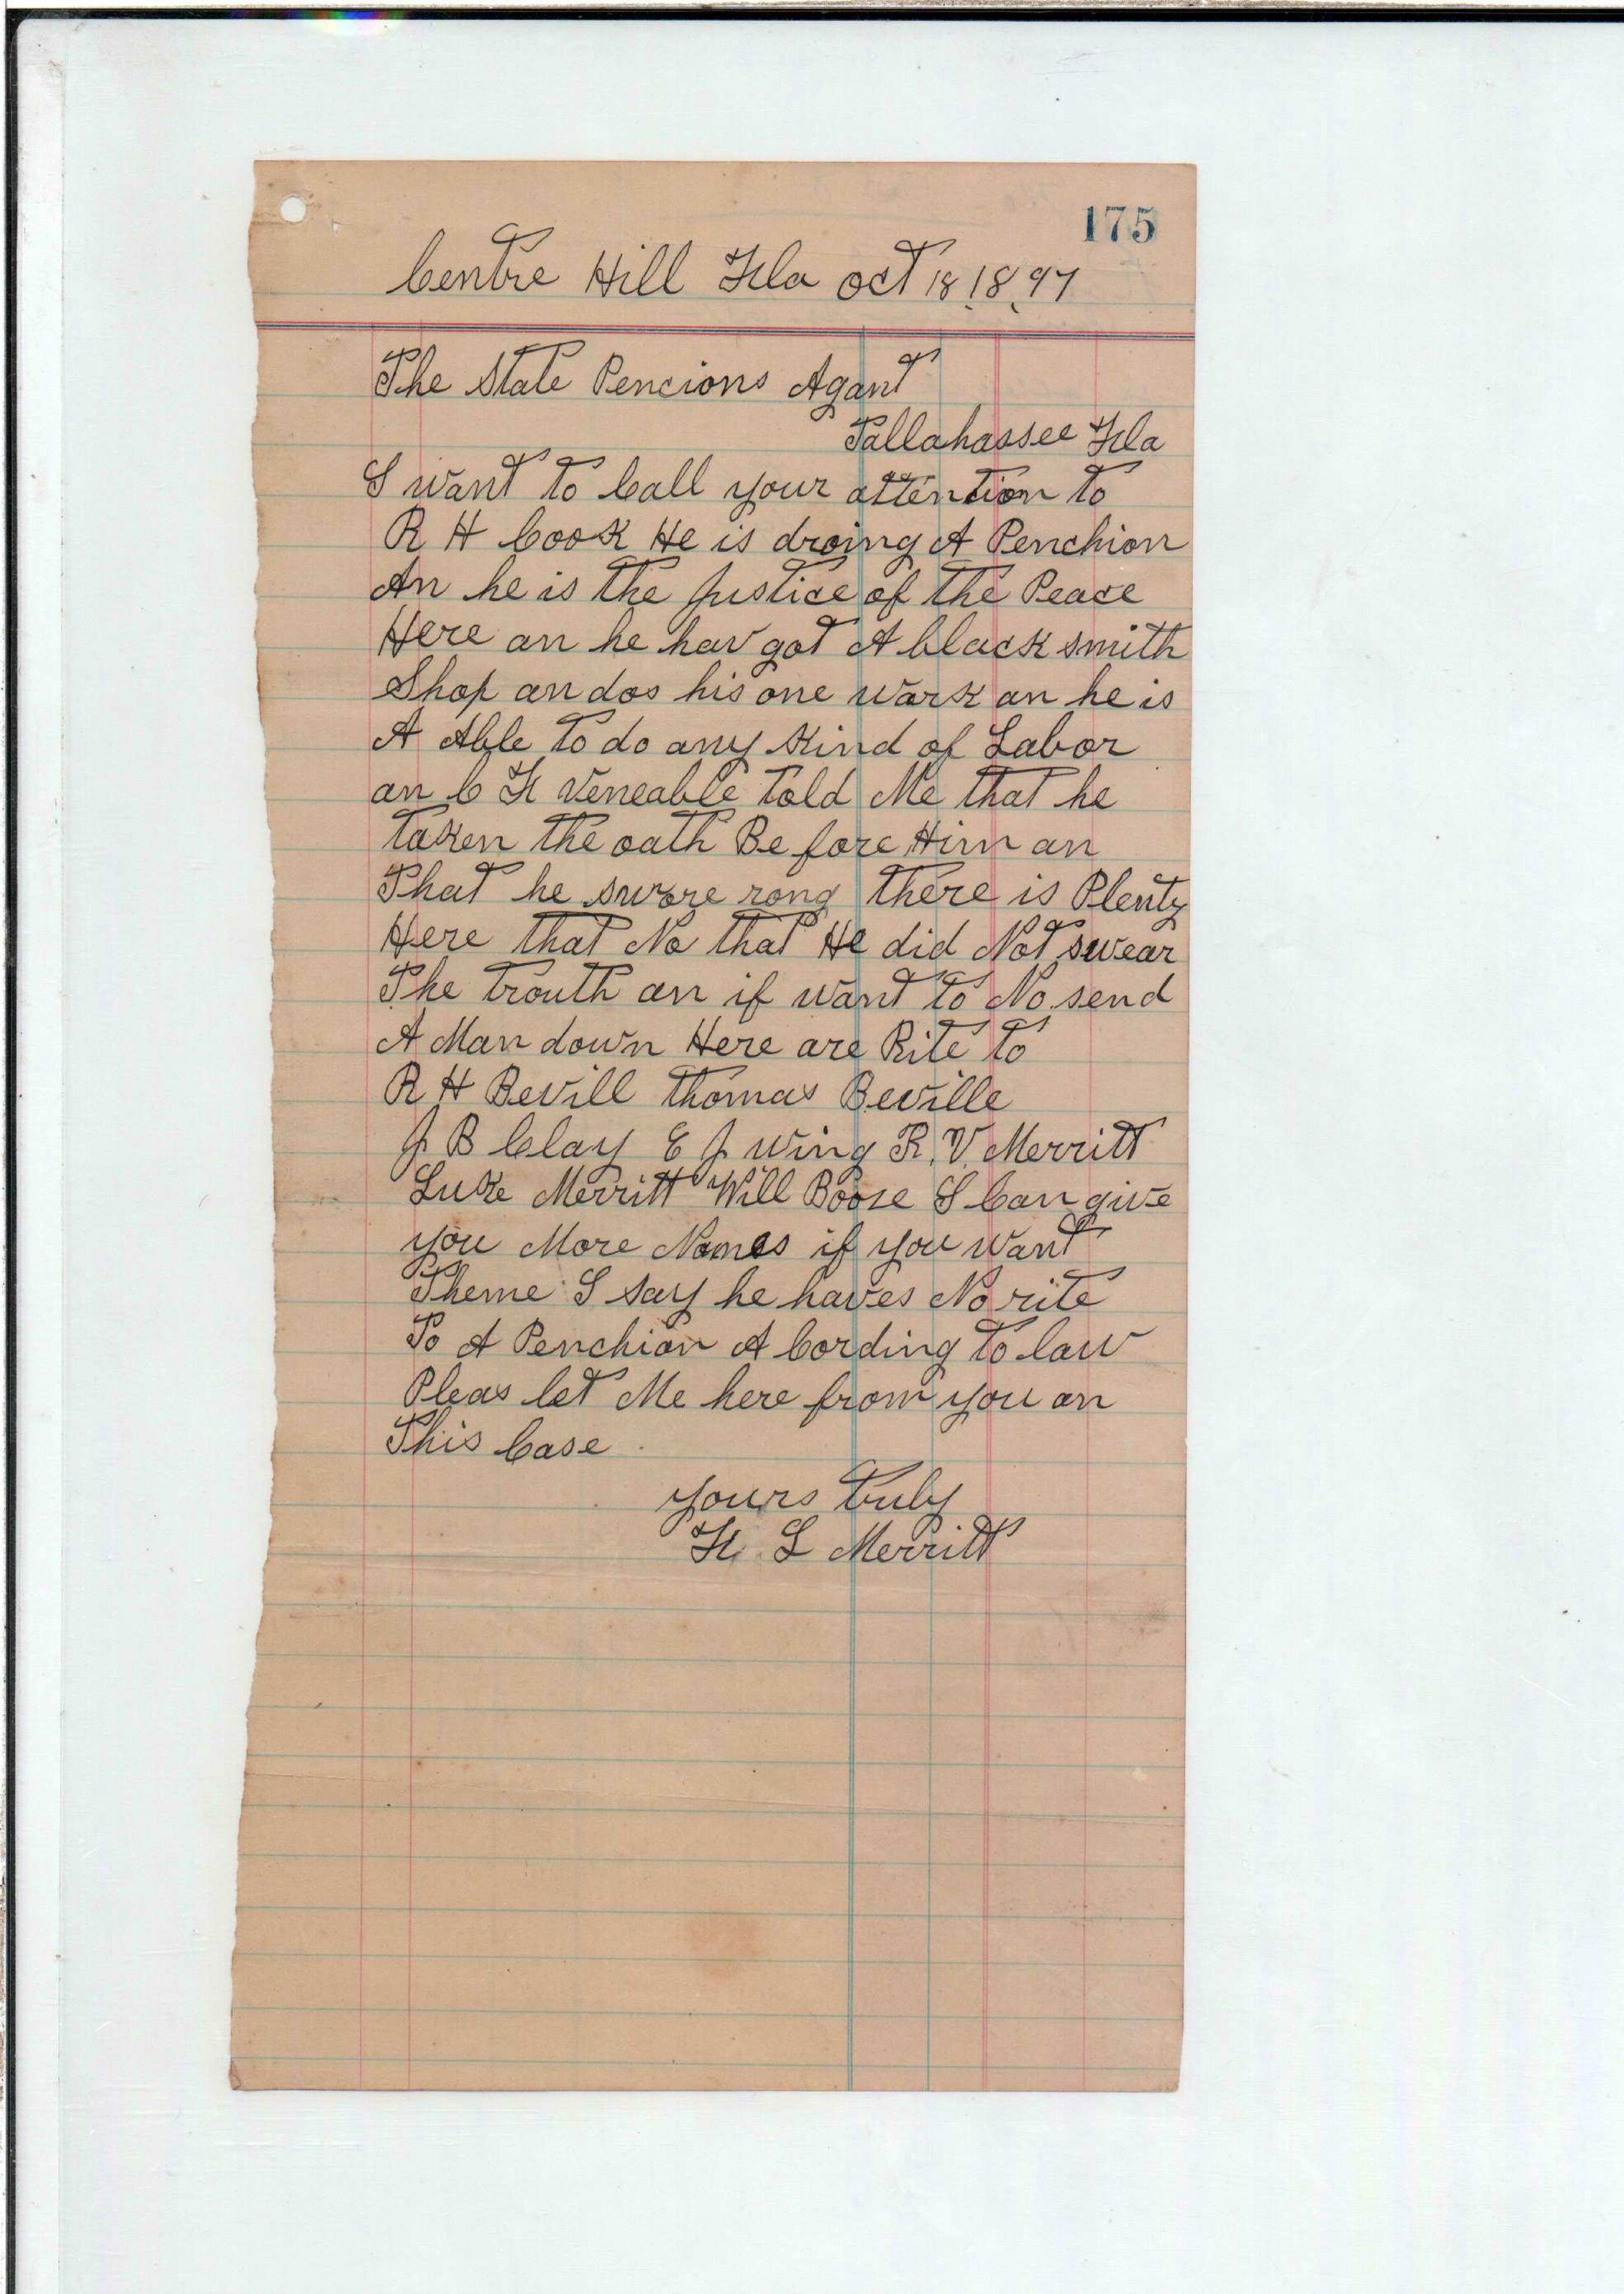 175
Centre Hill Fla oct 18, 18,97
The State Pencions Agant
Tallahassee Fla
I want to Call your attention to
R H Cook He is droing A Penchion
An he is the Justice of the Peace
Here an he hav got A black smith
Shop an dos his one wark an he is
A Able to do any kind of Labor
an C F Veneable told Me that he
taken the oath Be fore Him an
That he swore rong there is Plenty
Here that No that He did Not swear
The trouth an if want to No send
A Man down Here are Rite to
R H Bevill Thomas Beville
J B Clay E J Wing R. V. Merritt
Luke Merritt Will Boose I Can give
you More Names if you want
Theme I say he haves No rite
To A Penchion A Cording to law
Pleas let Me here from you on
This Case
yours truly
F. L Merritt